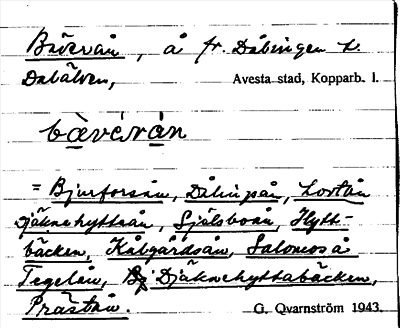 Bäverån, å fr. Dåbingen t.
Dalälven,
Avesta stad, Kopparb. l.
bä̀vérån
= Bjurforsån, Lortån
Djäknehyttan, Själsboån, Hytt-
bäcken, Kålgårdsån, Salomoså
Tegelån, Djäknehyttabäcken,
Prästån.
G. Qvarnström 1943.